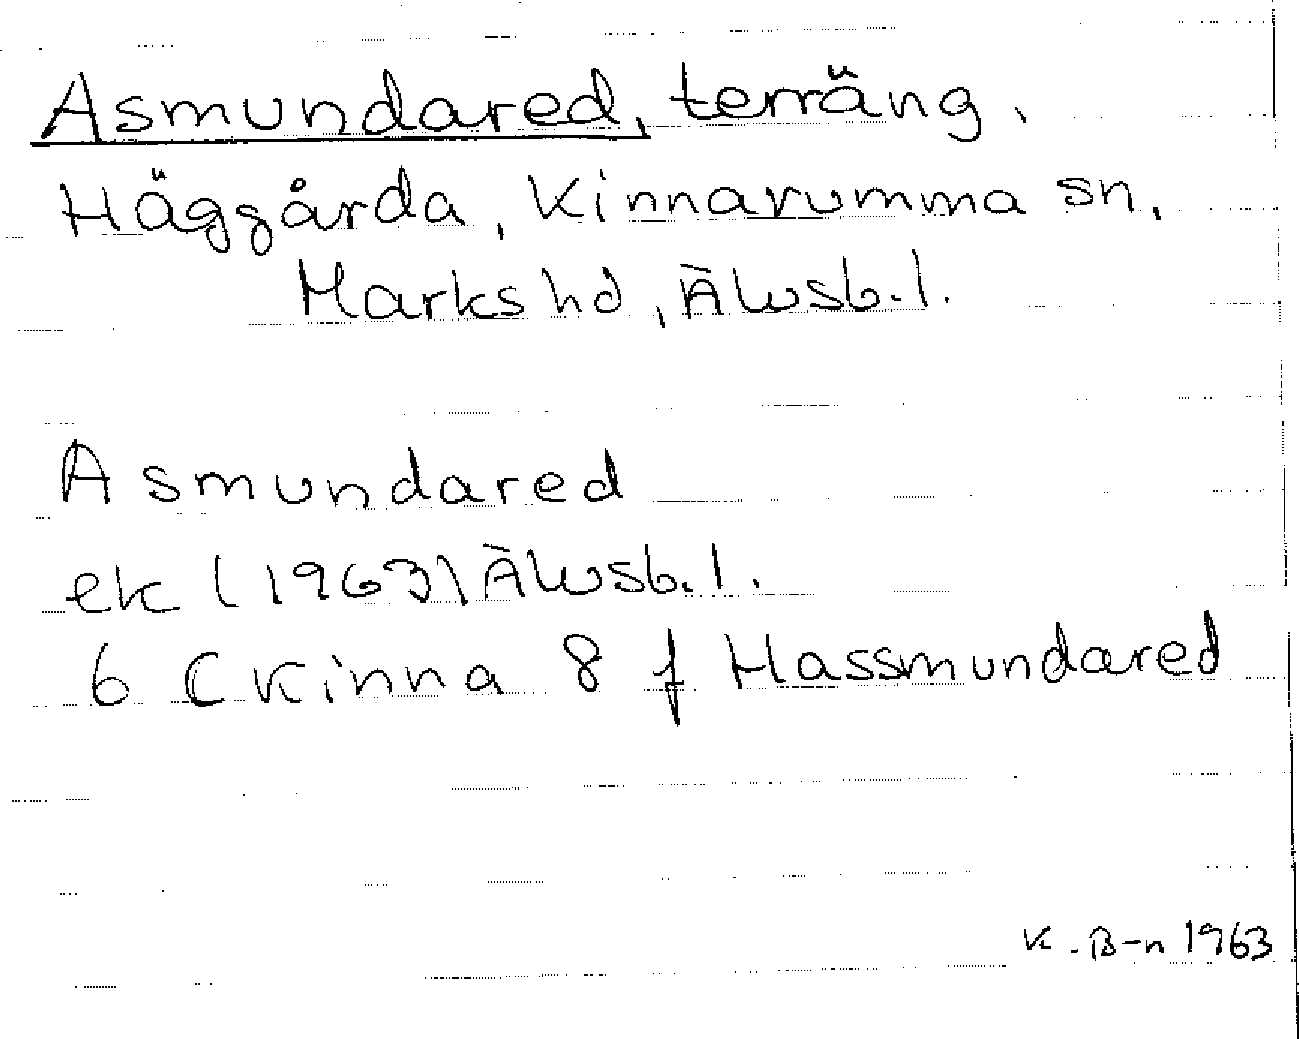 Asmundared, terräng,
Häggårda, Kinnarumma sn,
Marks hd, Älvsb.l.
Asmundared
ek (1963) Älvsb.l.
6 C Kinna 8 f Hassmundared
K.B-n 1963